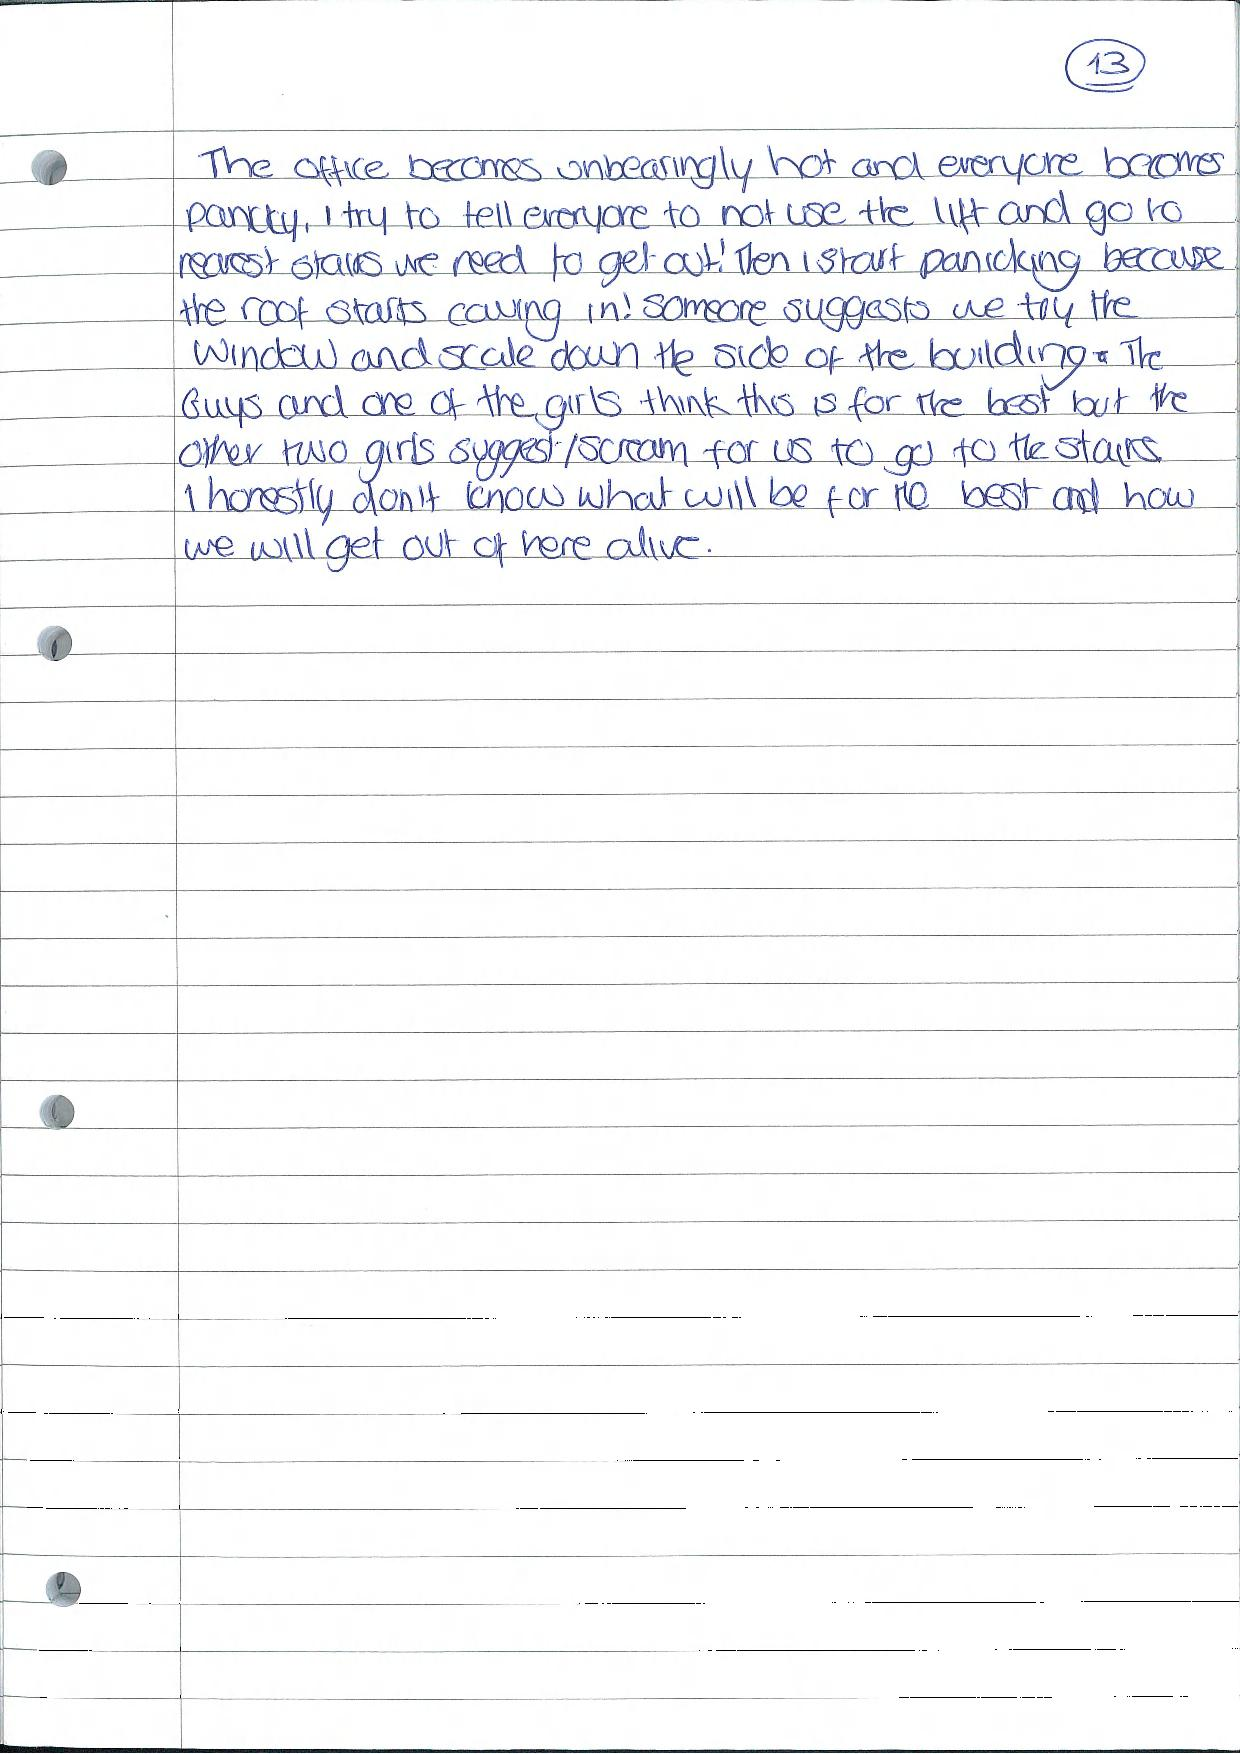 13
The office becomes unbearingly hot and everyone becomes
panicky, I try to tell everyone to not use the lift and go to
nearest stairs we need to get out! Then I start panicking because
the roof starts caving in! Someone suggests we try the
window and scale down the side of the building. The
Guys and one of the girls think this is for the best but the
other two girls suggest/scream for us to go to the stairs.
I honestly don't know what will be for the best and how
we will get out of here alive.